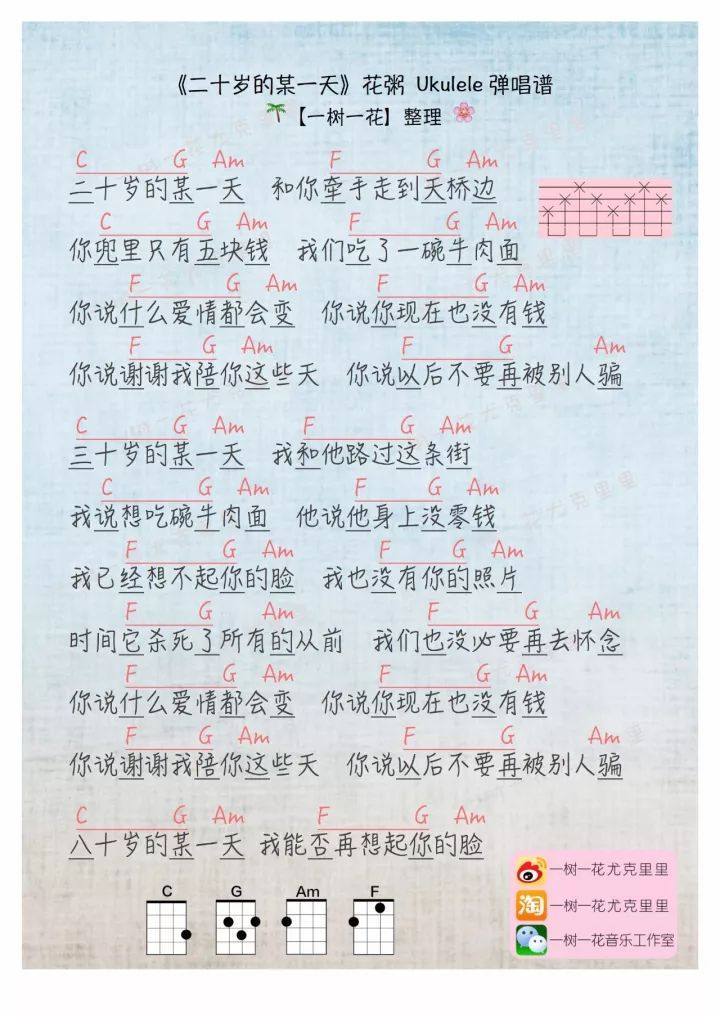 《二十岁的某一天》花粥 Ukulele 弹唱谱
【一树一花】整理
C G Am F G Am
二十岁的某一天 和你牵手走到天桥边
C G Am F G Am
你兜里只有五块钱 我们吃了一碗牛肉面
F G Am F G Am
你说什么爱情都会变 你说你现在也没有钱
F G Am F G Am
你说谢谢我陪你这些天 你说以后不要再被别人骗
C G Am F G Am
三十岁的某一天 我和他路过这条街
C G Am F G Am
我说想吃碗牛肉面 他说他身上没零钱
F G Am F G Am
我已经想不起你的脸 我也没有你的照片
F G Am F G Am
时间它杀死了所有的从前 我们也没必要再去怀念
F G Am F G Am
你说什么爱情都会变 你说你现在也没有钱
F G Am F G Am
你说谢谢我陪你这些天 你说以后不要再被别人骗
C G Am F G Am
八十岁的某一天 我能否再想起你的脸
C G Am F
一树一花尤克里里
淘 一树一花尤克里里
一树一花音乐工作室